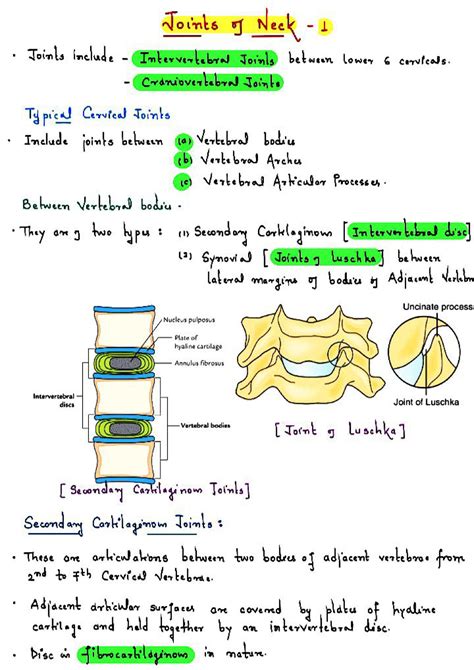 Joints of Neck - 1
• Joints include - Intervertebral Joints between lower 6 cervicals.
- Craniovertebral Joints
Typical Cervical Joints
• Include joints between (a) Vertebral bodies
(b) Vertebral Arches
(c) Vertebral Articular Processes.
Between Vertebral bodies -
• They are of two types : (1) Secondary Cartilaginous [Intervertebral disc]
(2) Synovial [Joints of Luschka] between
lateral margins of bodies of Adjacent Vertebr
Nucleus pulposus
Plate of
hyaline cartilage
Annulus fibrosus
Intervertebral
discs
Vertebral bodies
[Secondary Cartilaginous Joints]
Uncinate processe
Joint of Luschka
[Joint of Luschka]
Secondary Cartilaginous Joints :
• These are articulations between two bodies of adjacent vertebrae from
2nd to 7th Cervical Vertebrae.
• Adjacent articular surfaces are covered by plates of hyaline
cartilage and held together by an intervertebral disc.
• Disc is fibrocartilaginous in nature.